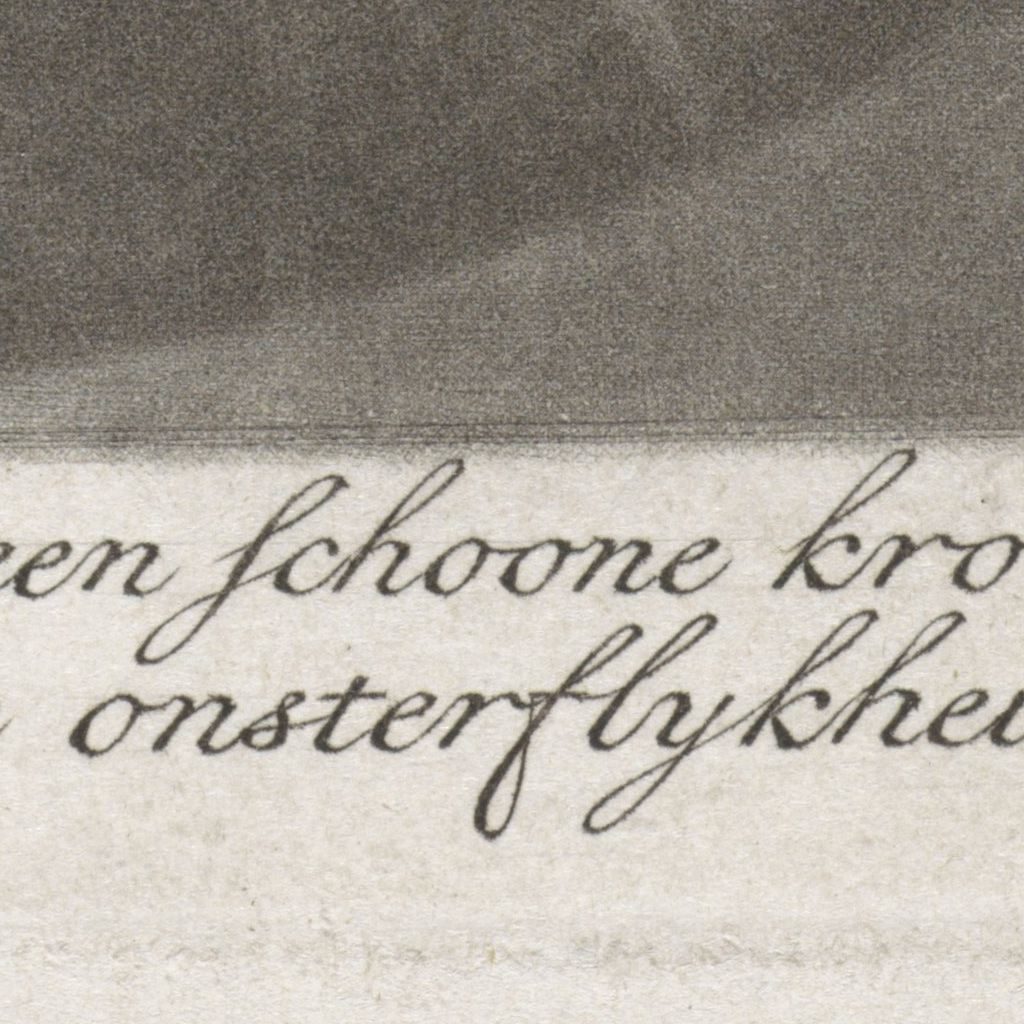 een schoone kro
onsterflykhei